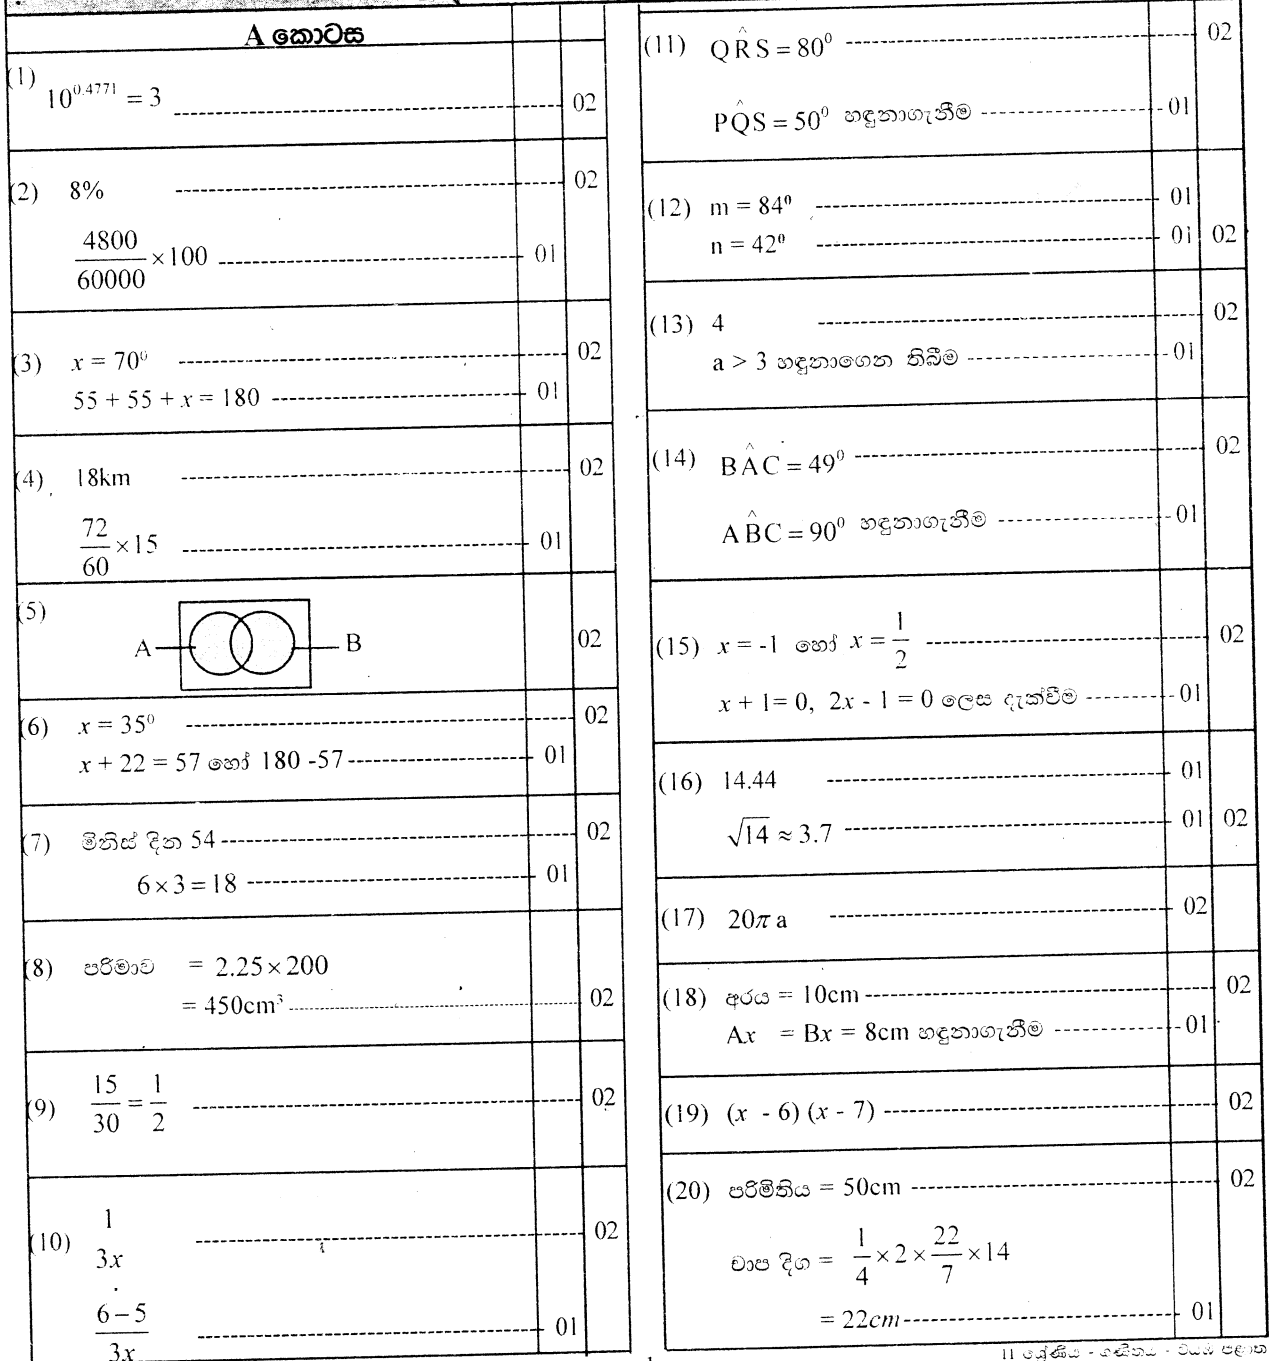 A කොටස
(1) 10^0.4771 = 3 02
(2) 8% 02
4800/60000 × 100 01
(3) x = 70⁰ 02
55 + 55 + x = 180 01
(4) 18km 02
72/60 × 15 01
(5) A B 02
(6) x = 35⁰ 02
x + 22 = 57 හෝ 180 -57 01
(7) මිනිස් දින 54 02
6 × 3 = 18 01
(8) පරිමාව = 2.25 × 200
= 450cm³ 02
(9) 15/30 = 1/2 02
(10) 1/3x 02
(6 – 5)/3x 01
(11) QR̂S = 80⁰ 02
PQ̂S = 50⁰ හඳුනාගැනීම 01
(12) m = 84⁰ 01
n = 42⁰ 01 02
(13) 4 02
a > 3 හඳුනාගෙන තිබීම 01
(14) BÂC = 49⁰ 02
AB̂C = 90⁰ හඳුනාගැනීම 01
(15) x = -1 හෝ x = 1/2 02
x + 1= 0, 2x - 1 = 0 ලෙස දැක්වීම 01
(16) 14.44 01
√14 ≈ 3.7 01 02
(17) 20π a 02
(18) අරය = 10cm 02
Ax = Bx = 8cm හඳුනාගැනීම 01
(19) (x - 6) (x - 7) 02
(20) පරිමිතිය = 50cm 02
චාප දිග = 1/4 × 2 × 22/7 × 14
= 22cm 01
11 ශ්‍රේණිය - ගණිතය - වයඹ පළාත